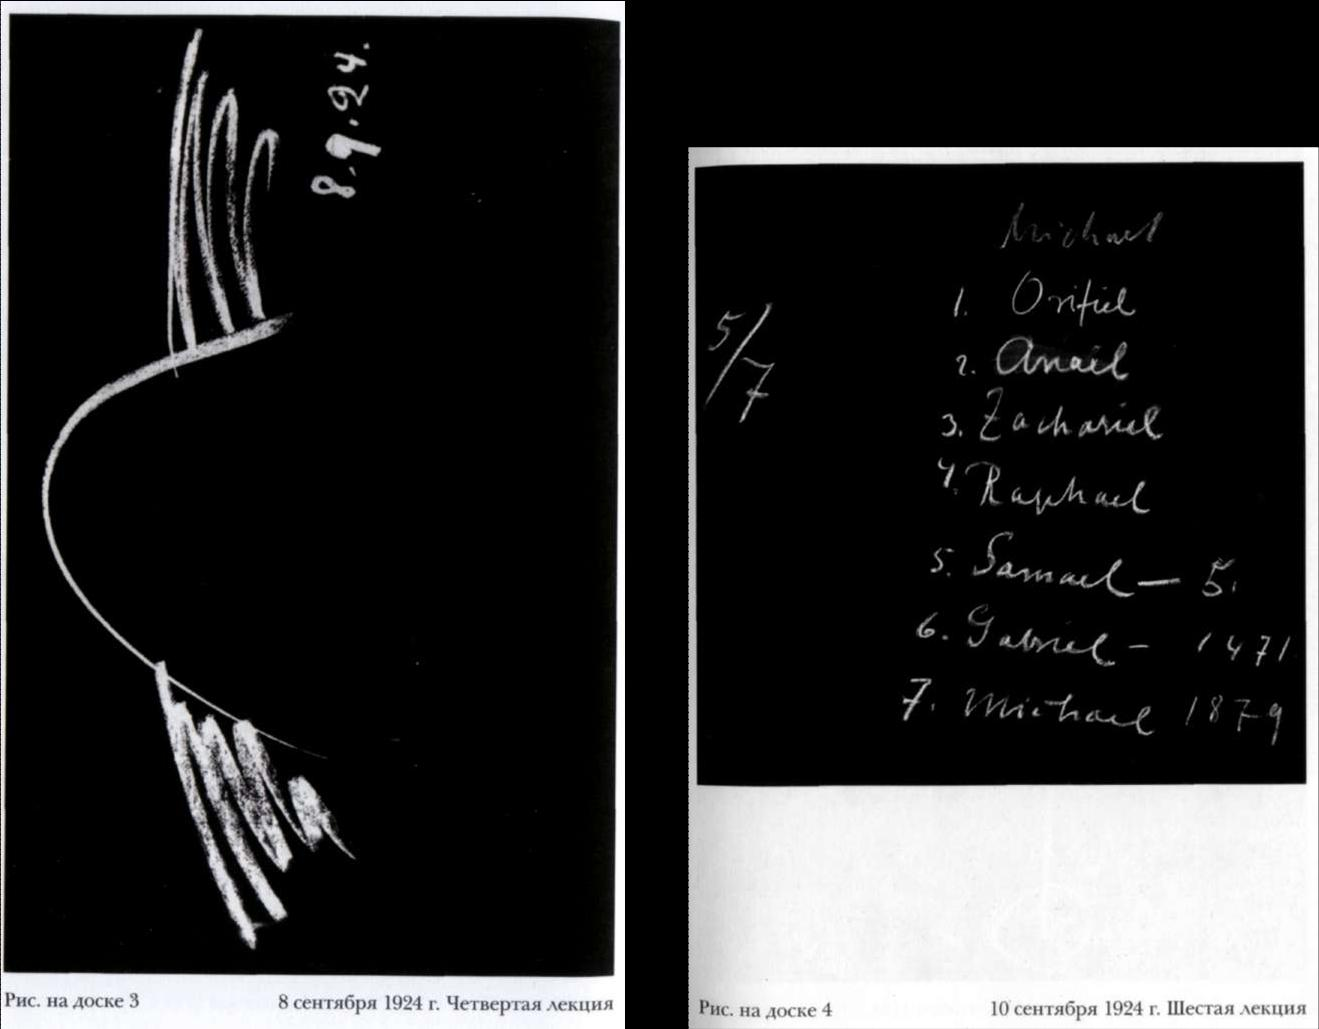 8.9.24.
Рис. на доске 3
8 сентября 1924 г. Четвертая лекция
Michael
5/7
1. Orifiel
2. Anael
3. Zachariel
4. Raphael
5. Samael — 5.
6. Gabriel - 1471
7. Michael 1879
Рис. на доске 4
10 сентября 1924 г. Шестая лекция